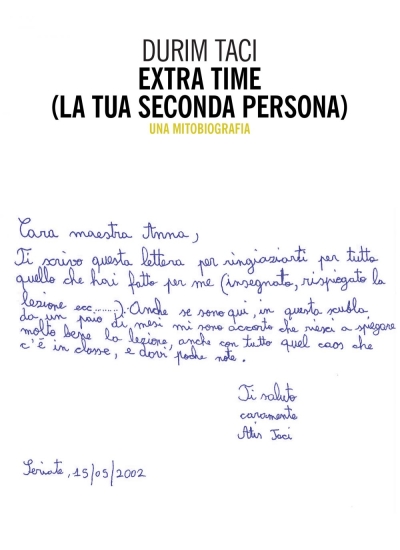 DURIM TACI
EXTRA TIME
(LA TUA SECONDA PERSONA)
UNA MITOBIOGRAFIA
Cara maestra Anna,
Ti scrivo questa lettera per ringiaziarti per tutto
quello che hai fatto per me (insegnato, rispiegato la
lezione ecc.........). Anche se sono qui, in questa scuola,
da un paio di mesi mi sono accorto che riesci a spiegare
molto bene la lezione, anche con tutto quel caos che
c'é in classe, e dovi poche note.
Ti saluto
caramente
Atis Taci
Seriate, 15/05/2002